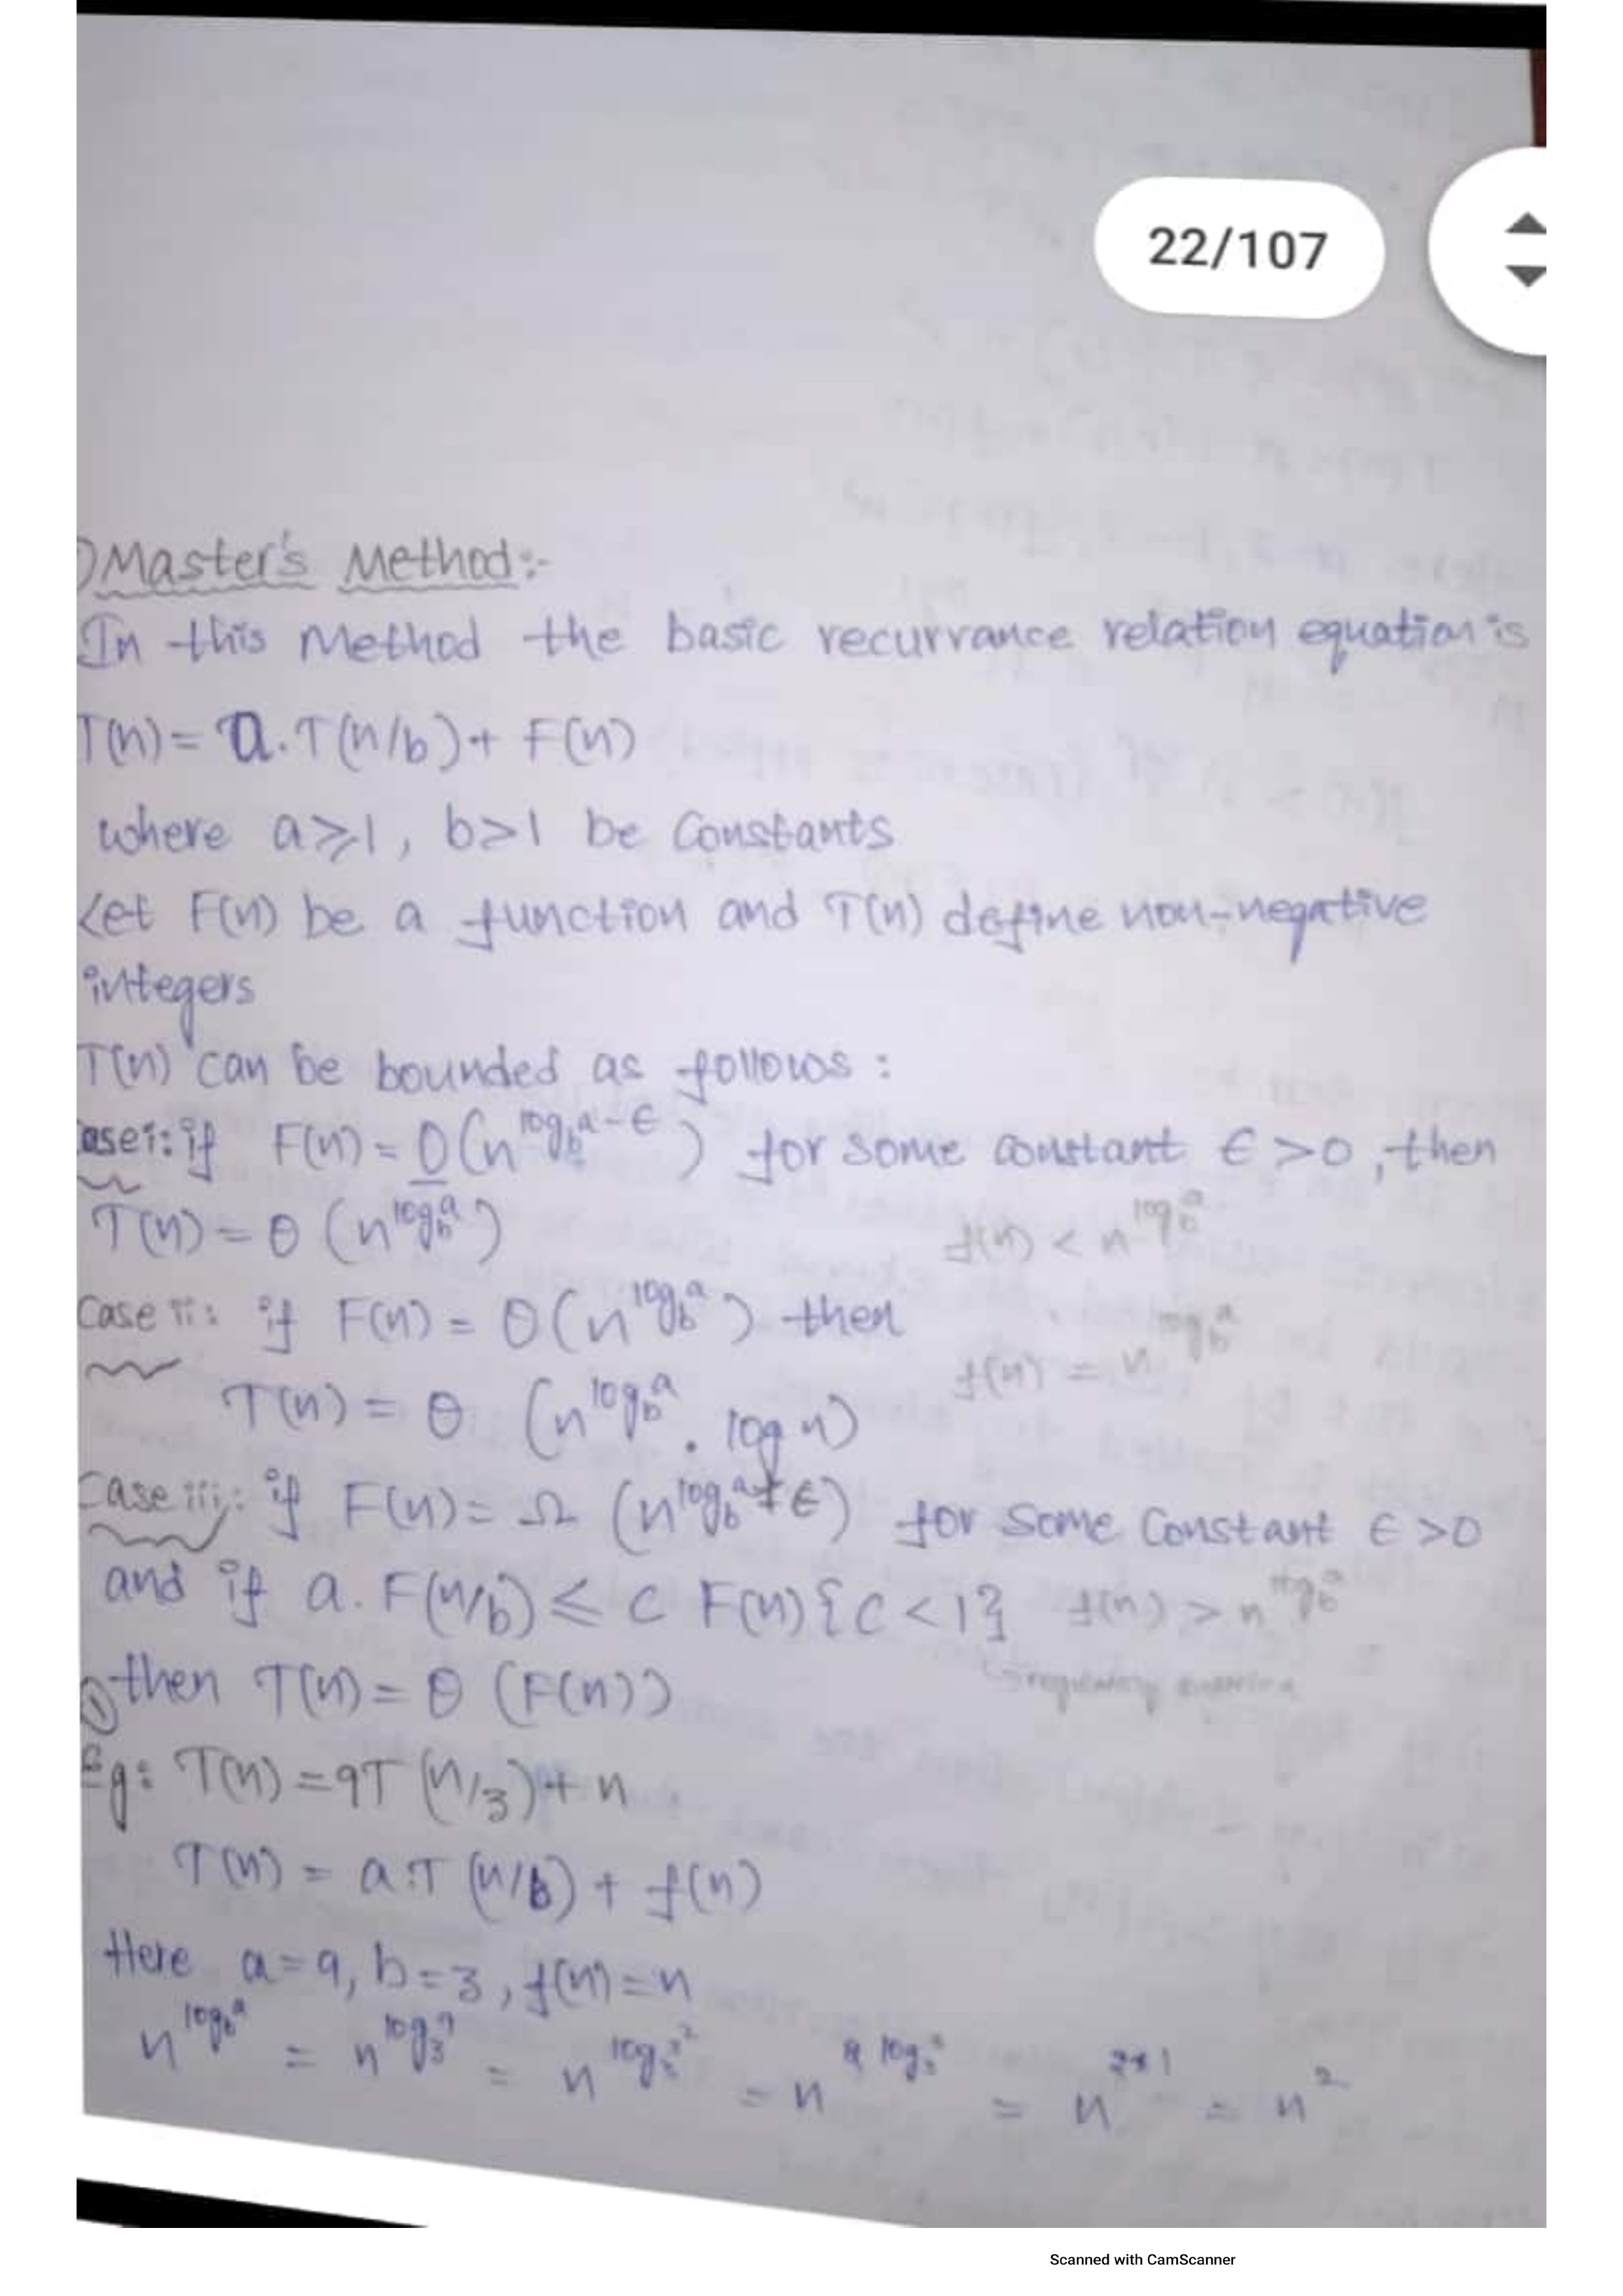 22/107
Master's Method:-
In this Method the basic recurrance relation equation is
T(n) = a.T(n/b) + F(n)
where a ≥ 1, b > 1 be Constants
Let F(n) be a function and T(n) define non-negative
integers
T(n) can be bounded as follows :
case i: if F(n) = O(n^log_b a - ε) for some constant ε > 0, then
T(n) = θ (n^log_b a) f(n) < n^log_b a
Case ii: if F(n) = θ(n^log_b a) then
f(n) = n^log_b a
T(n) = θ (n^log_b a . log n)
Case iii: if F(n) = Ω (n^log_b a + ε) for some Constant ε > 0
and if a. F(n/b) ≤ C F(n) {C < 1} f(n) > n^log_b a
then T(n) = θ (F(n))
① Eg: T(n) = 9T (n/3) + n
T(n) = a.T (n/b) + f(n)
Here a = 9, b = 3, f(n) = n
n^log_b a = n^log_3 9 = n^log_3 3^2 = n^2 log_3 3 = n^2*1 = n^2
Scanned with CamScanner